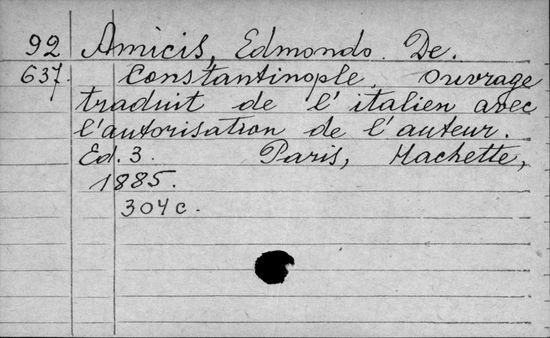 92 Amicis, Edmondo. De.
637. Constantinople. Ouvrage
traduit de l'italien avec
l'autorisation de l'auteur.
Ed. 3. Paris, Hachette,
1885.
304 c.